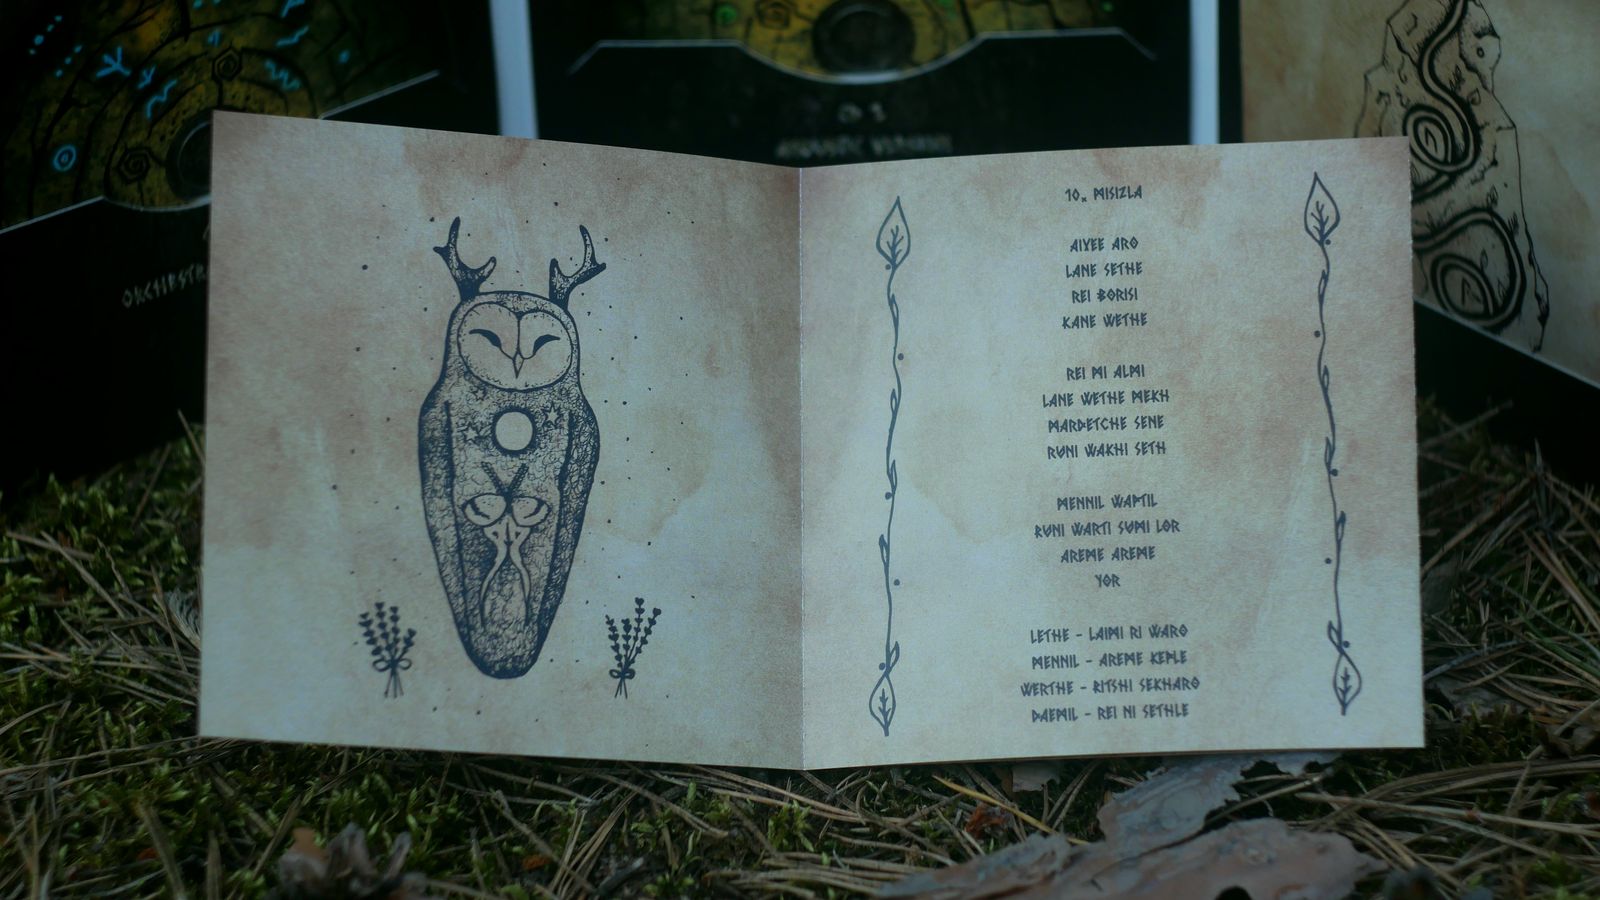 ACOUSTIC VERSIONS
10. MISIZLA
AIYEE ARO
LANE SETHE
REI BORISI
KANE WETHE
REI MI ALMI
LANE WETHE MEKH
MARDETCHE SENE
RUNI WAKHI SETH
MENNIL WARTIL
RUNI WARTI SUMI LOR
AREME AREME
YOR
LETHE - LAIMI RI WARO
MENNIL - AREME KEPLE
WERTHE - RITSHI SEKHARO
DAEMIL - REI NI SETHLE